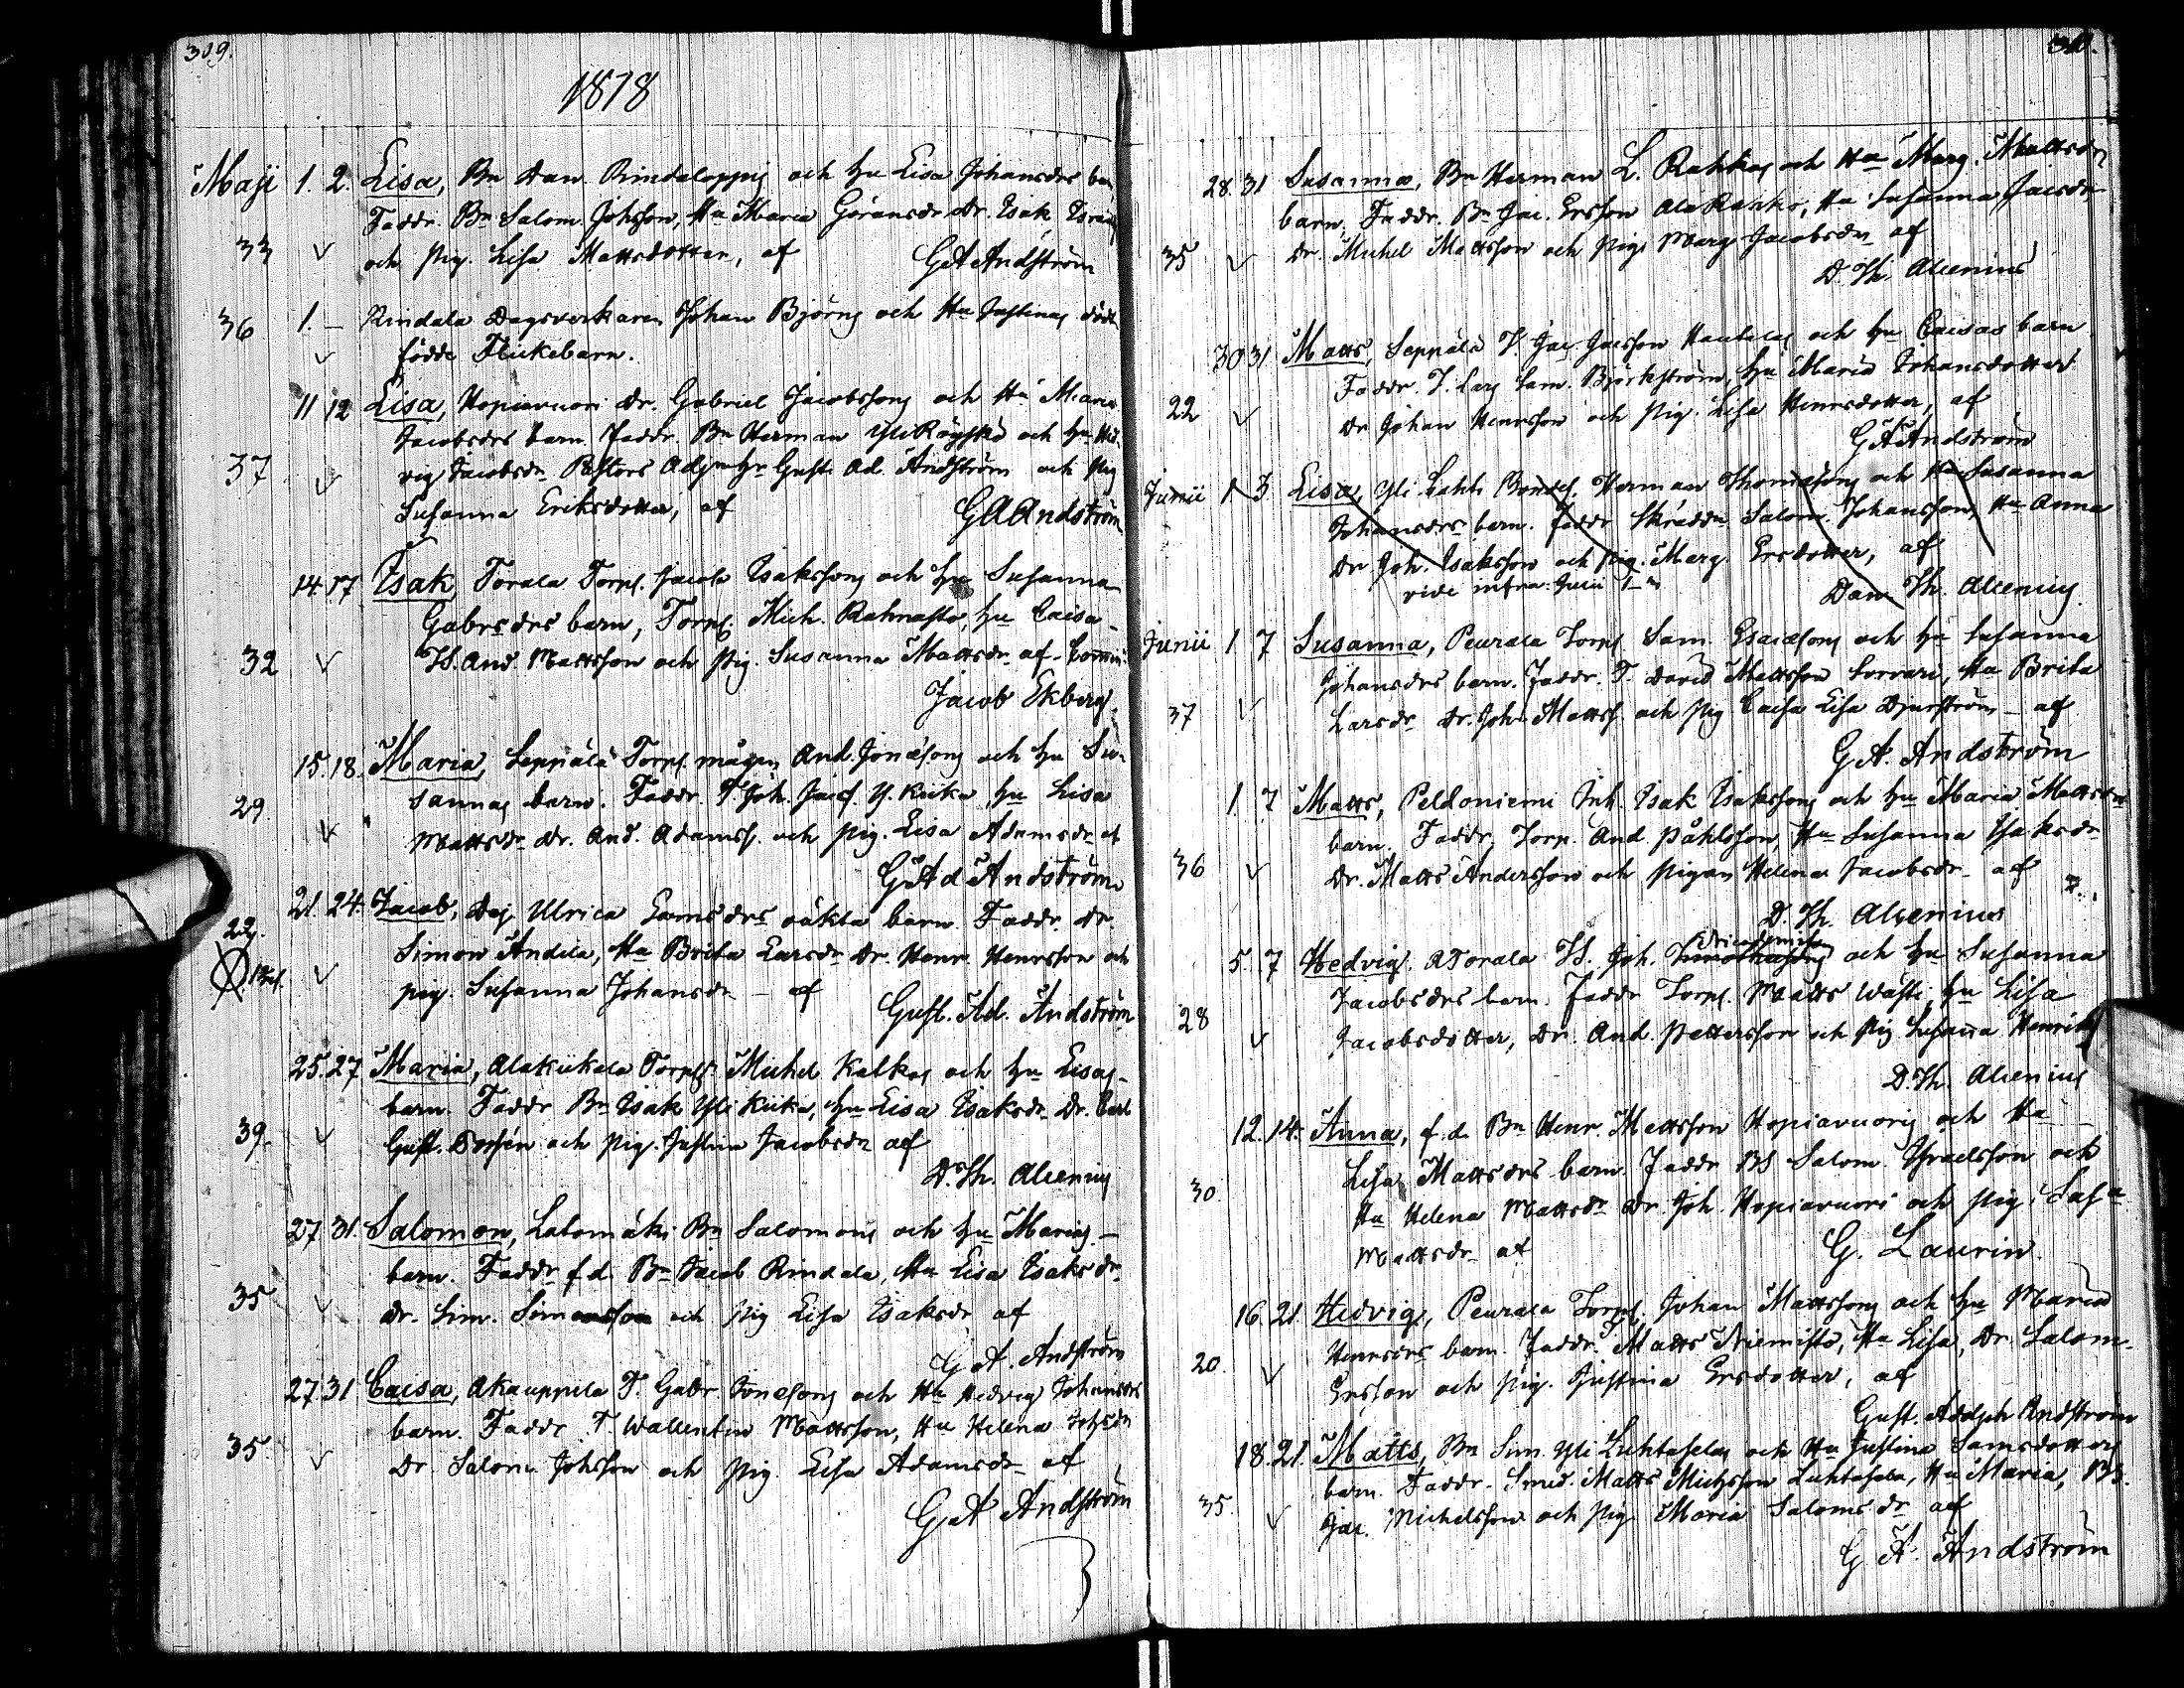 309.
1818
Maji 1. 2. Lisa, Bn Dan. Rindaloppig och Hu Lisa Johansdrs barn
Faddr. Bn Salom. Johsson, Hu Maria Göransdr Dr. Isak
33 och Pig. Lisa Mattsdotter, af GA Andström
36 1. – Rindala Dagsverkaren Johan Björns och Hu Justinas död
födde Flickebarn.
11 12 Lisa, Hopiavuori Dr. Gabriel Jacobssons och Hu Maria
Jacobsdrs barn. Faddr. Bn Herman YliRöyskö och Hu Hed-
37 vig Jacobsdr Pastors Adj Gust. Ad. Andström och Pig
Susanna Eriksdotter, af GA Andström
14. 17 Isak, Torala Torp. Jacob Isakssons och Hu Susanna
Gabrsdrs barn, Torp. Mich. Rahnasto, Hu Caisa
32 And. Mattsson och Pig. Susanna Mattsdr af
Jacob Ekberg.
15. 18. Maria, Seppälä Torp. mågen And. Jonæsons och Hu Su-
sannas barn. Faddr. T. Joh. Jacs. Y. Kuika Hu Lisa
29 Mattsdr Dr. And. Adamss. och Pig. Lisa Adamsdr af
G Ad Andström
21. 24. Jacob, Dej. Ulrica oäkta barn. Faddr. Dr.
22. Simon Andila, Hu Brita Larsdr Dr. Henr. Henrsson och
pig. Susanna Johansdr – af
Gust. Ad. Andström
25. 27 Maria, Alakuikala Torp. Michel Kalkas och Hu Lisas
barn. Faddr Bn Isak Yli Kuika, Hu Lisa Isaksdr Dr. Carl
39. Gust. och Pig. Justina Jacobsdr af
D. Th. Alcenius
27. 31. Salomon, Latomäki Bn Salomons och Hu Marias
barn. Faddr f.d. Bn Jacob Rindala, Hu Lisa Isaksdr
35 Dr. Sim. Simonsson och Pig Lisa Isaksdr af
G A. Andström
27. 31 Caisa, Akauppila T. Gabr. Jonæsons och Hu Hedvig Johansdrs
barn. Faddr T. Wallentin Mattsson, Hu Helena
35. Dr. Salom. Johsson och Pig. Lisa Adamsdr af
G A Andström
310.
28. 31 Susanna, Bn Herman L. Rahkos och Hu Marg. Mattsdrs
barn, Faddr. Bn Jac. Ersson AlaRahko, Hu Susanna Jacsdr
35 Dr. Michel Mattsson och Pig. Marg. Jacobsdr af
D. Th. Alcenius
30 31 Matts, Seppälä T. Jac. Jacsson Hautalas och Hu Caisas barn
Faddr. T. Lars Sam. Björkström, Hu Maria Johansdotter
22 Dr Johan Henrsson och Pig. Lisa Henrsdotter, af
G A Andström
Junii 1 3 Lisa, Yli Lahti Herman Thomæsons och Hu Susanna
Johansdrs barn. Faddr Skräddn. Salom. Johansson, Hu Anna
Dr. Joh. Isaksson och Pig. Marg. Ersdotter, af
vide infra
Dan. Th. Alcenius
Junii 1 7 Susanna, Peurala Torp. Sam. Esaiæsons och Hu Susanna
Johansdrs barn. Faddr. T. David Mattsson Sorvari, Hu Brita
37 Larsdr Dr. Joh. Mattss. och Pig Caisa Lisa Djurström – af
G A. Andström
1. 7 Matts, Peldoniemi Inh. Isak Isakssons och Hu Maria Mattsdrs
barn. Faddr. Torp. And. Påhlsson, Hu Susanna Isaksdr
36 Dr. Matts Andersson och Pigan Helena Jacobsdr af
D. Th. Alcenius
5. 7 Hedvig, ATorala Joh. Timothæsons och Hu Susanna
Jacobsdrs barn. Faddr Torp. Matts Wästi, Hu Lisa
28 Jacobsdotter, Dr. And. Pettersson och Pig Susanna
D. Th. Alcenius
12. 14. Anna, f.d. Bn Henr. Mattsson Hopiavuoris och Hu
Lisa Mattsdrs barn. Faddr BS Salom. Israelsson och
30. Hu Helena Mattsdr Dr. Joh. Hopiavuori och Pig.
Mattsdr af G. Laurin.
16. 21. Hedvig, Peurala Torp. Johan Mattssons och Hu Maria
Henrsdrs barn. Faddr. Matts Niemistö, Hu Lisa, Dr. Salom.
20. Ersson och Pig. Justina Ersdotter, af
Gust. Adolph Andström
18. 21. Matts, Bn Sim. Yli Luhtaselas och Hu Justina Samsdotters
barn. Faddr. Smed. Matts Michsson Luhtasela, Hu Maria, BS.
35. Jac. Michelsson och Pig. Maria Salomsdr af
G A. Andström